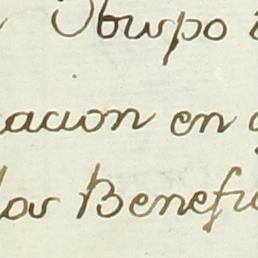 Obispo
acion en
los Benefi